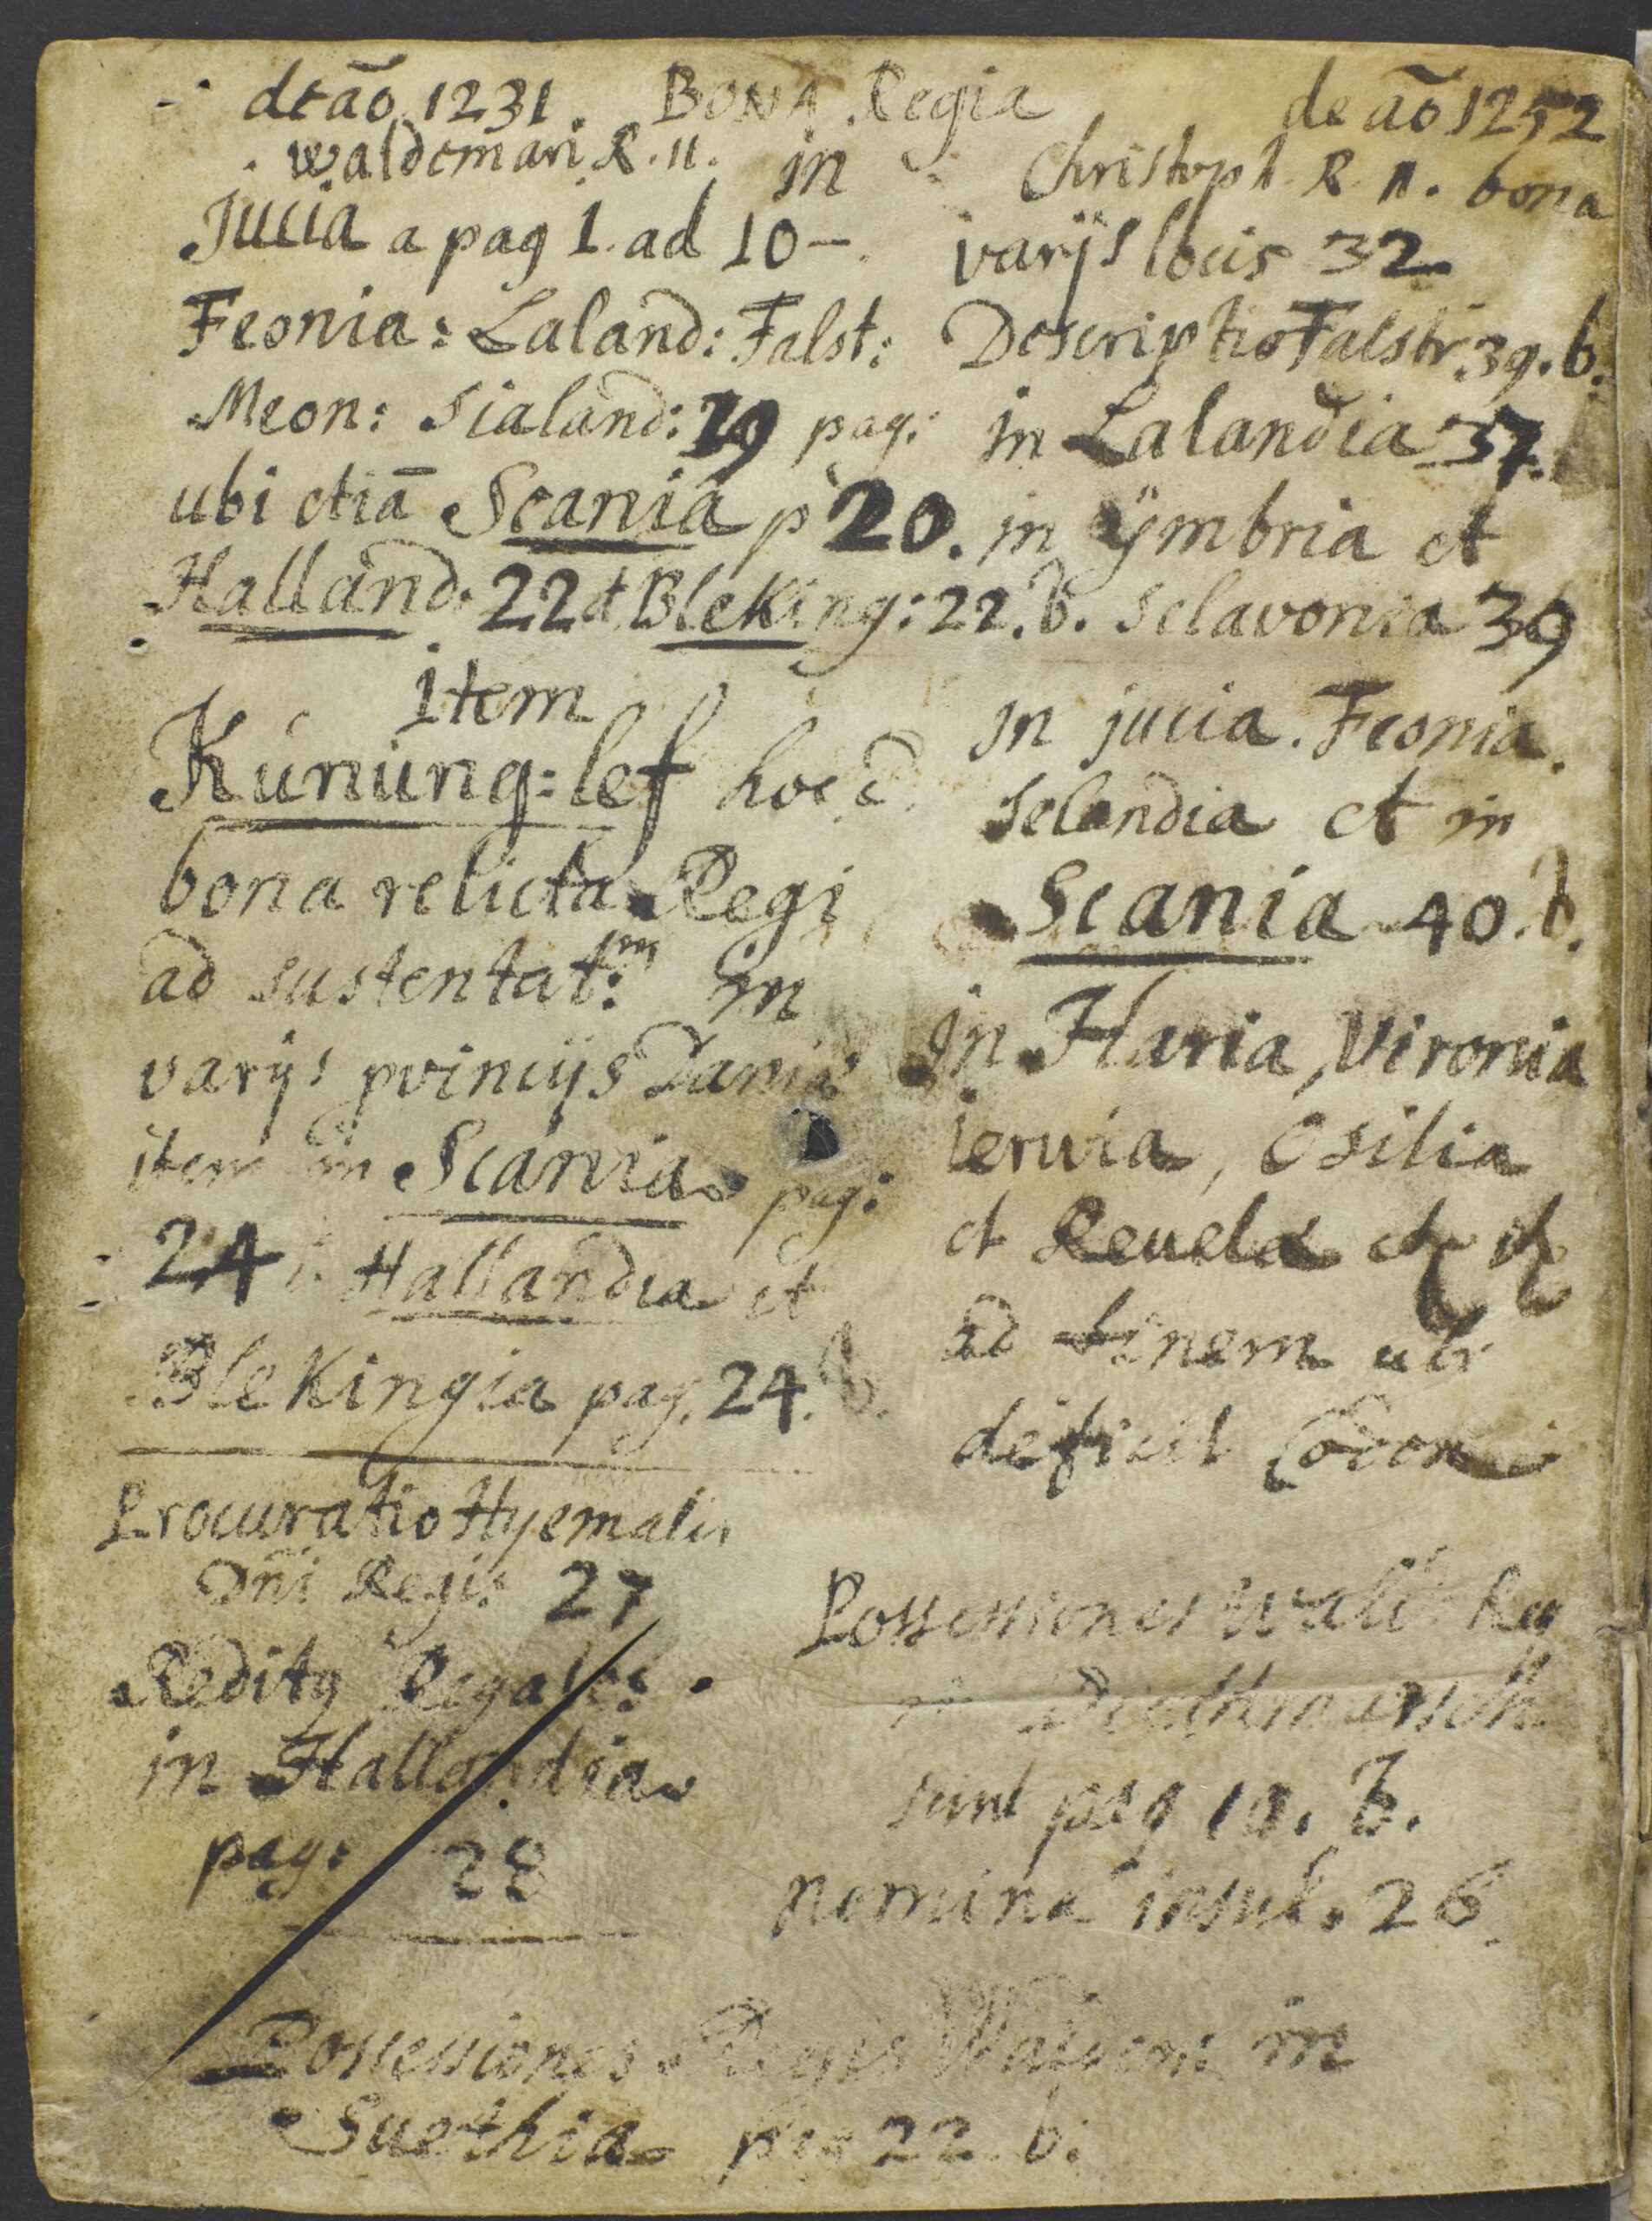 de ao 1231. BONA Regia
waldemari R. II. in
Jucia a pag 1. ad 10 –.
Feonia: Laland: Falst:
Meon: Sialand: 19 pag:
ubi etiā Scania p 20.
Halland: 22 et Bleking: 22. b.
item
Kununq:lef hoc ē
bona relicta Regi
ad sustentat:m in
varijs pvincijs Daniæ
item in Scania pag:
24. i. Hallandia et
Blekingia pag. 24. b.
Procuratio Hyemalis
Dñi Regis 27
Redity Regales.
in Hallandia
pag: 28
de ao 1252
Christoph R II. bona
varijs locis 32
Descriptio Falstr. 39. b.
in Lalandia 37.
in ÿmbria et
Sclavonia 39
in jucia. Feonia.
Selandia et in
Scania 40. b.
in Haria, Vironia
ierwia, Osilia
et Reuela etc etc
ad finem ubi
deficit Codex
Possessiones Wald Reg
in Diethmarsch
sunt pag 10. b.
nomina insul. 26
Possessiones Regis Waldem in
Suethia pag 22 b.